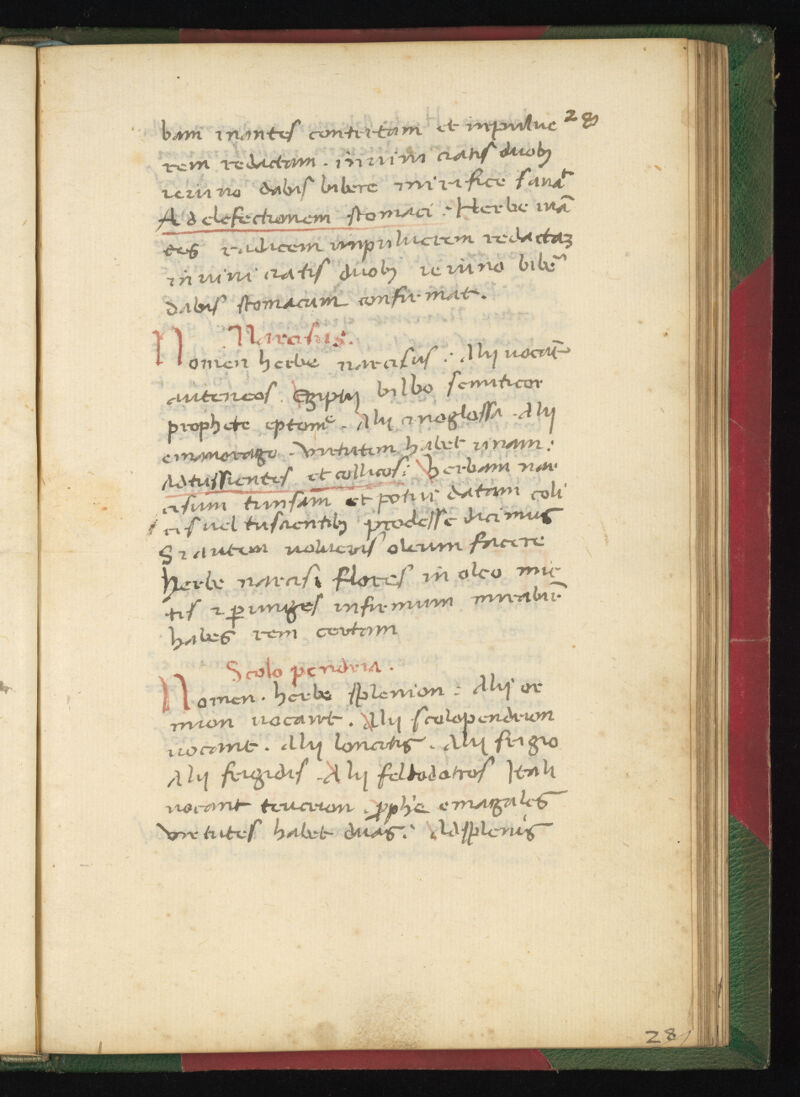 28
bam inantes contritam et inpulue
rem redactam . in uini ciatis duob
ieiuno dabis bibere mirifice sanat
Ad elefectionem stomaci : Herbe inā
tes radicem inpuluerem redactaʒ
in uini ciatis duob ieiuno bibe
dabis stomacum confirmat .
Narcisus .
Nomen herbe narcisus : Alii uocāt
auteneos . Egiptii bilbo semuticor
prophete eptome . Alii inoglossa . Alii
emanorago . uirtutem habet unam :
Ad tussientes et collicos : herbam nar
cisum tunsam et potui datam coli
cis uel tuscientib prodesse dicimus
Si autem uolueris oleum facere
herbe narcisi flores in oleo mic
tis 2 perunges infirmum mirabir
habes rem certam
Scolo pendria .
Nomen . herbe splenion : Alii or
mion uocant . Alii scolopendrion
uocant . Alii loncitis . Alii frigio
Alii frigidis . Alii feltodotros Itali
uocant teucrion . pphe emagales
uirtutes habet duas : Ad splenis
28